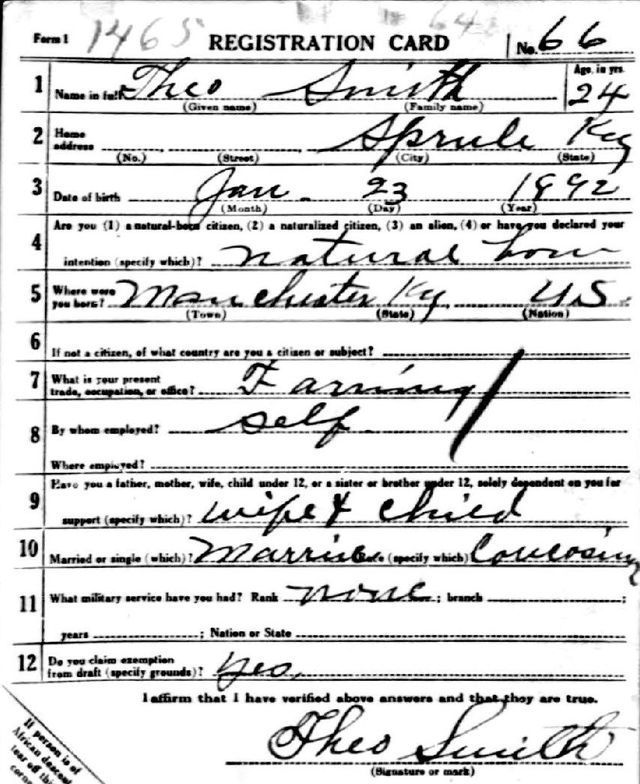 Form 1 1465 REGISTRATION CARD No. 66
1 Name in full Theo Smith Age, in yrs. 24
(Given name) (Family name)
2 Home address Sprule Ky
(No.) (Street) (City) (State)
3 Date of birth Jan. 23 1892
(Month) (Day) (Year)
4 Are you (1) a natural-born citizen, (2) a naturalized citizen, (3) an alien, (4) or have you declared your
intention (specify which)? natural born
5 Where were you born? Manchester Ky U.S.
(Town) (State) (Nation)
6 If not a citizen, of what country are you a citizen or subject?
7 What is your present trade, occupation, or office? Farming
8 By whom employed? self
Where employed?
9 Have you a father, mother, wife, child under 12, or a sister or brother under 12, solely dependent on you for
support (specify which)? wife & child
10 Married or single (which)? Married Race (specify which)
11 What military service have you had? Rank none ; branch ;
years ; Nation or State
12 Do you claim exemption from draft (specify grounds)? yes,
I affirm that I have verified above answers and that they are true.
Theo Smith
(Signature or mark)
If person is of
African descent
tear off this
corner